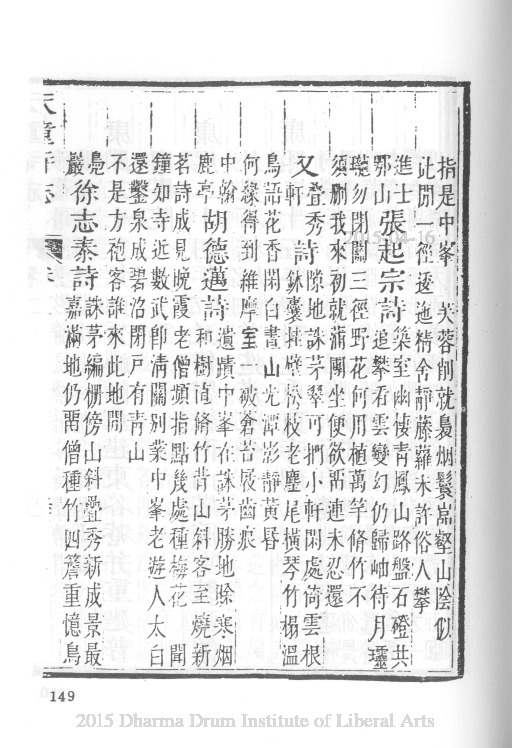 指是中峯 芙蓉削就裊烟鬟嵓壑山陰似
此閒一徑逶迤精舍靜藤蘿未許俗人攀
進士張起宗詩築室幽棲青鳳山路盤石磴共
鄂山 追攀看雲變幻仍歸岫待月瓏
瓏勿閉關三徑野花何用植萬竿脩竹不
須删我來初就蒲團坐便欲畱連未忍還
又疊秀詩隙地誅茅翠可捫小軒閑處倚雲根
軒 鉢囊挂壁松枝老麈尾橫琴竹榻溫
鳥語花香閑白晝山光潭影靜黃昏
何緣得到維摩室一破蒼苔屐齒痕
中翰胡德邁詩遺蹟中峯在誅茅勝地賖寒烟
鹿亭 和樹直脩竹背山斜客至燒新
茗詩成見晚霞老僧頻指點幾處種梅花 聞
鐘知寺近數武卽淸關別業中峯老遊人太白
還鑿泉成碧沼閉戶有靑山
不是方袍客誰來此地閒
鳧徐志泰詩誅茅編栅傍山斜疊秀新成景最
巖 嘉滿地仍畱僧種竹四簷重憶鳥
天童寺志
149
2015 Dharma Drum Institute of Liberal Arts